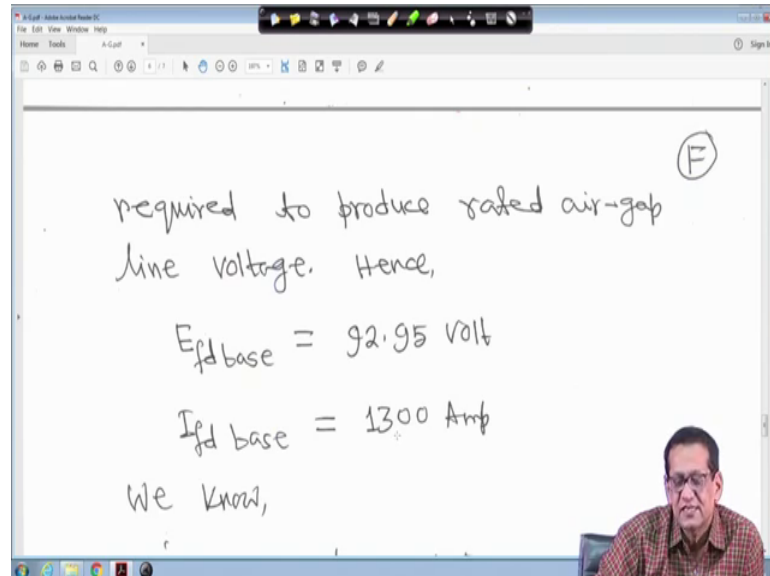 A-G.pdf - Adobe Acrobat Reader DC
File Edit View Window Help
Home Tools A-G.pdf × Sign In
(F)
required to produce rated air-gap
line voltage. Hence,
E_fd base = 92.95 Volt
I_fd base = 1300 Amp
We know,